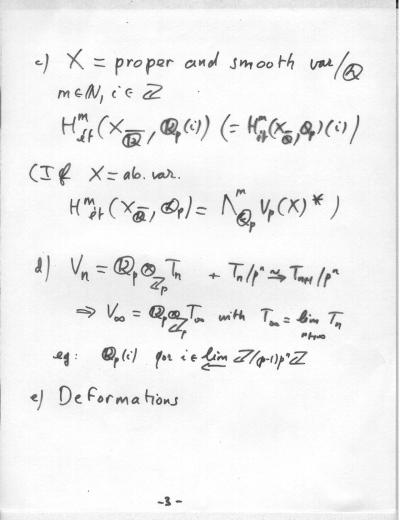 c) X = proper and smooth var/ℚ
m∈ℕ, i∈ℤ
H^m_ét(X_ℚ̄, ℚ_p(i)) (= H^m_ét(X_ℚ̄, ℚ_p)(i))
(If X = ab. var.
H^m_ét(X_ℚ̄, ℚ_p) = Λ^m_ℚ_p V_p(X)*)
d) V_n = ℚ_p ⊗_ℤ_p T_n + T_n/p^n ≃→ T_n+1/p^n
⇒ V_∞ = ℚ_p ⊗_ℤ_p T_∞ with T_∞ = lim_n→∞ T_n
eg: ℚ_p(i) for i ∈ lim← ℤ/(p-1)p^nℤ
e) Deformations
-3-